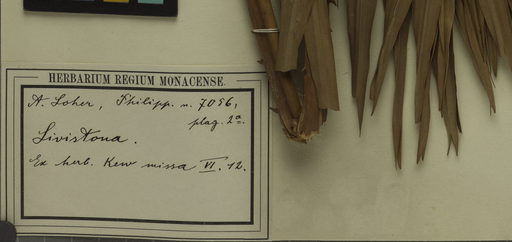 HERBARIUM REGIUM MONACENSE.
A. Loher, Philipp. n. 7056,
plag. 2ª.
Livistona.
Ex herb. Kew missa VI. 12.